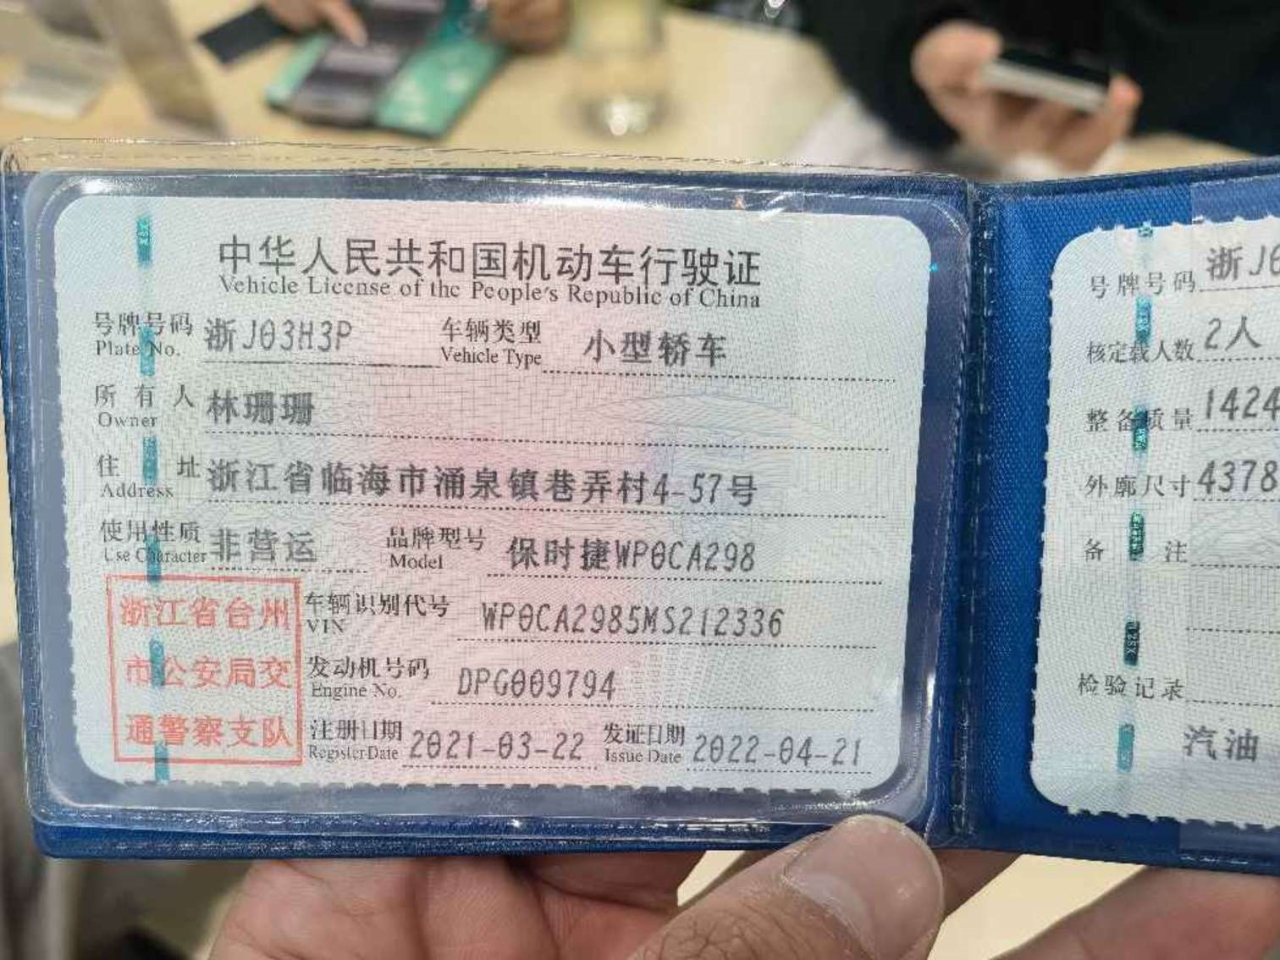 中华人民共和国机动车行驶证
Vehicle License of the People's Republic of China
号牌号码 浙J03H3P 车辆类型 小型轿车
Plate No. Vehicle Type
所有人 林珊珊
Owner
住址 浙江省临海市涌泉镇巷弄村4-57号
Address
使用性质 非营运 品牌型号 保时捷WP0CA298
Use Character Model
浙江省台州
市公安局交
通警察支队
车辆识别代号 WP0CA2985MS212336
VIN
发动机号码 DPG009794
Engine No.
注册日期 2021-03-22 发证日期 2022-04-21
Register Date Issue Date
号牌号码 浙J0
核定载人数 2人
整备质量 1424
外廓尺寸 4378
备注
检验记录
汽油